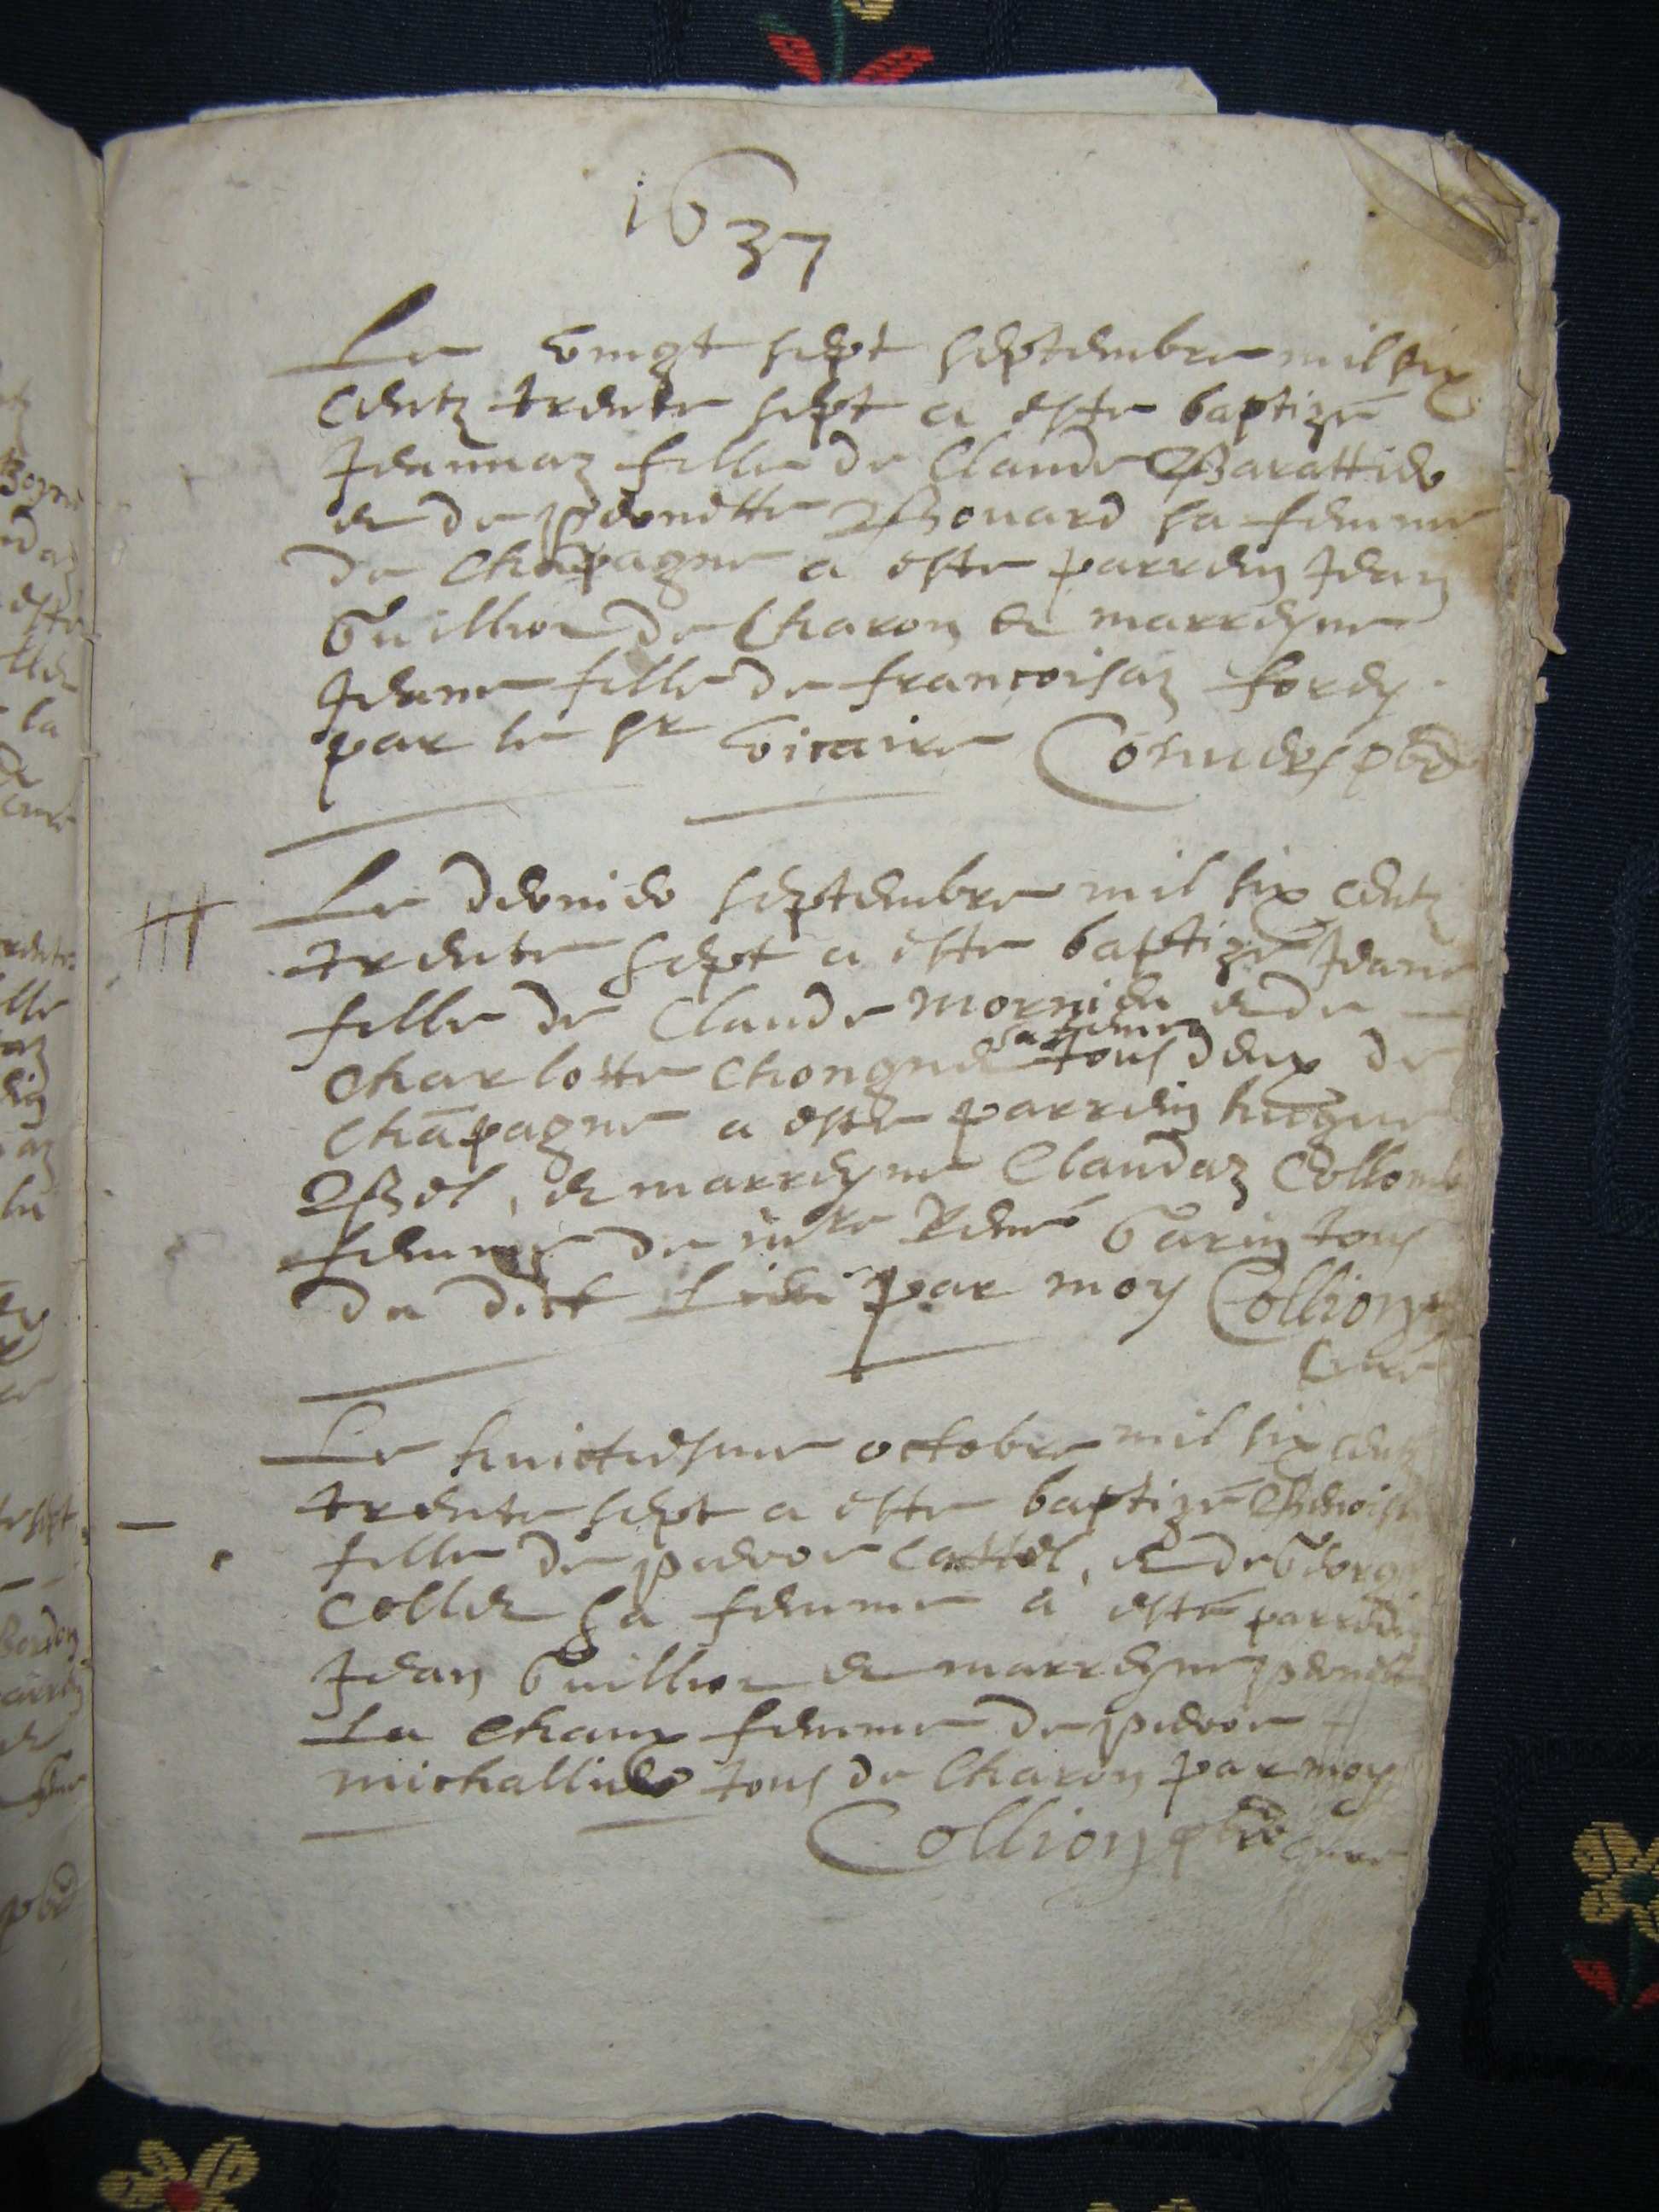 1637
Le vingt sept septembre mil six
centz trente sept a este baptizé
Jeannaz fille de Claude Barattier
et de pernette Bouard sa femme
de Chãpagne a este parrein Jean
Guilliet de Charon et marreyne
Jeanne fille de francoisaz forey
par le sr vicaire pbre
Le dernier septembre mil six centz
trente sept a este baptizé Jeane
fille de Claude mornieu et de
sa femme
Charlotte Chongne tous deux de
Chãpagne a este parrein hugue
Bel, et marreyne Claudaz Collomb
femme de mre René Garin tous
du dict lieu par moy Collion
Curé
Le huictiesme octobre mil six centz
trente sept a este baptizé
fille de pierre Cattel, et de George
Collet sa femme a esté parrein
Jean Guilliet et marreyne
La Chaux femme de pierre
michallier tous de Charon par moy
Collion pbre Curé